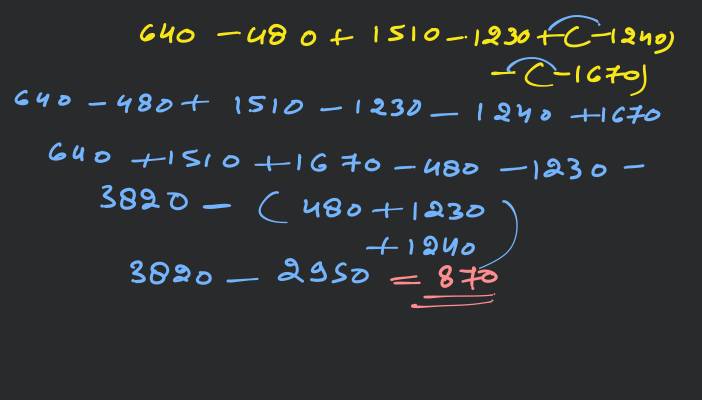 640 - 480 + 1510 - 1230 + (-1240)
- (-1670)
640 - 480 + 1510 - 1230 - 1240 + 1670
640 + 1510 + 1670 - 480 - 1230 -
3820 - ( 480 + 1230
+ 1240 )
3820 - 2950 = 870